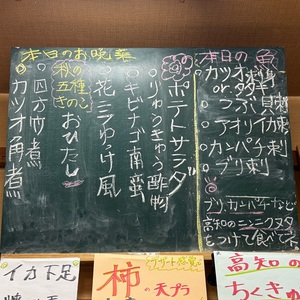 本日の魚
カツオ刺
or タタキ
つぶ刺
アオリイカ刺
カンパチ刺
ブリ刺
ブリ、カンパチなど
高知のニンニクヌタ
をつけて食べて
本日のお晩菜
ポテトサラダ
りゅうきゅう酢物
キビナゴ南蛮
花ニラゆっけ風
秋の
五種のきのこ
おひたし
四方竹煮
カツオ角煮
イカ下足
柿の天プラ
高知の
ちくきゅ